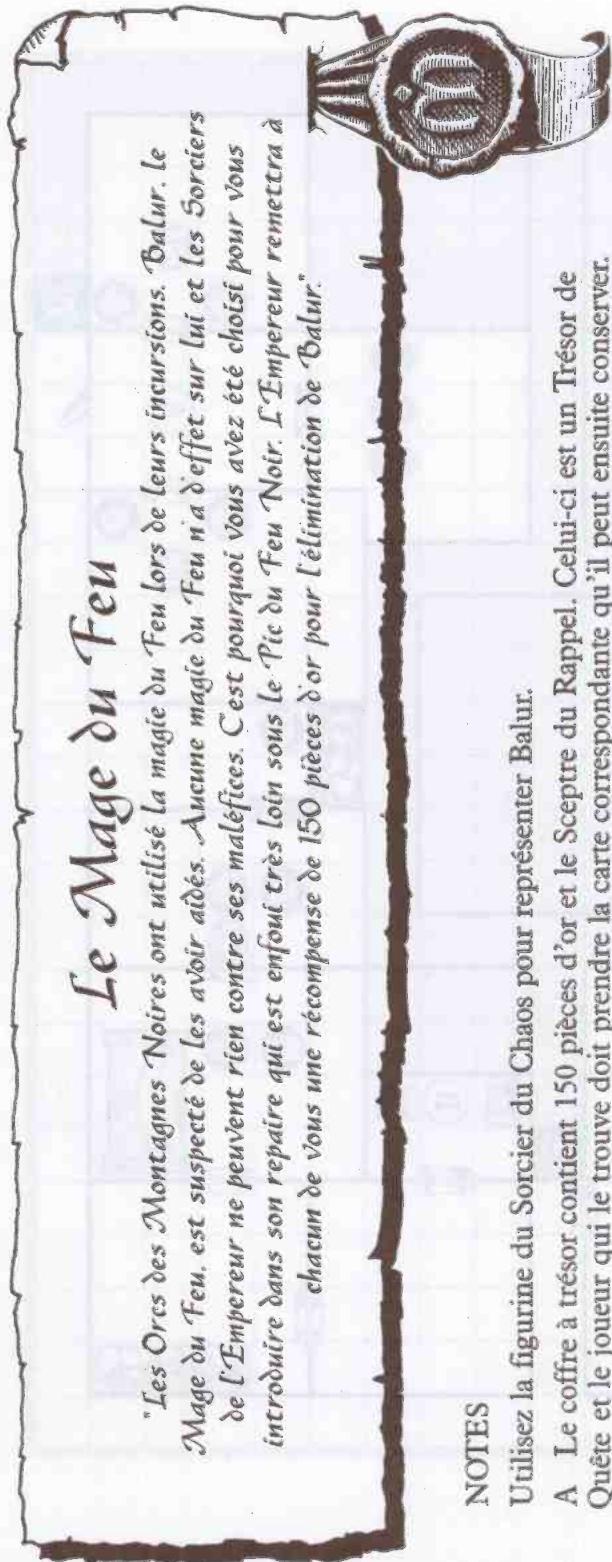 Le Mage du Feu
"Les Orcs des Montagnes Noires ont utilisé la magie du Feu lors de leurs incursions. Balur, le
Mage du Feu, est suspecté de les avoir aidés. Aucune magie du Feu n'a d'effet sur lui et les Sorciers
de l'Empereur ne peuvent rien contre ses maléfices. C'est pourquoi vous avez été choisi pour vous
introduire dans son repaire qui est enfoui très loin sous le Pic du Feu Noir. L'Empereur remettra à
chacun de vous une récompense de 150 pièces d'or pour l'élimination de Balur."
m
NOTES
Utilisez la figurine du Sorcier du Chaos pour représenter Balur.
A Le coffre à trésor contient 150 pièces d'or et le Sceptre du Rappel. Celui-ci est un Trésor de
Quête et le joueur qui le trouve doit prendre la carte correspondante qu'il peut ensuite conserver.